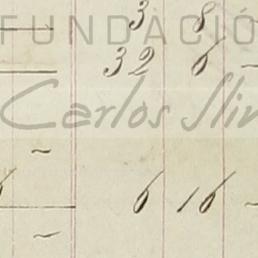 3 8 ~
FUNDACIÓ
32 6 ~
Carlos Slim
~
6 6 16 ~
~